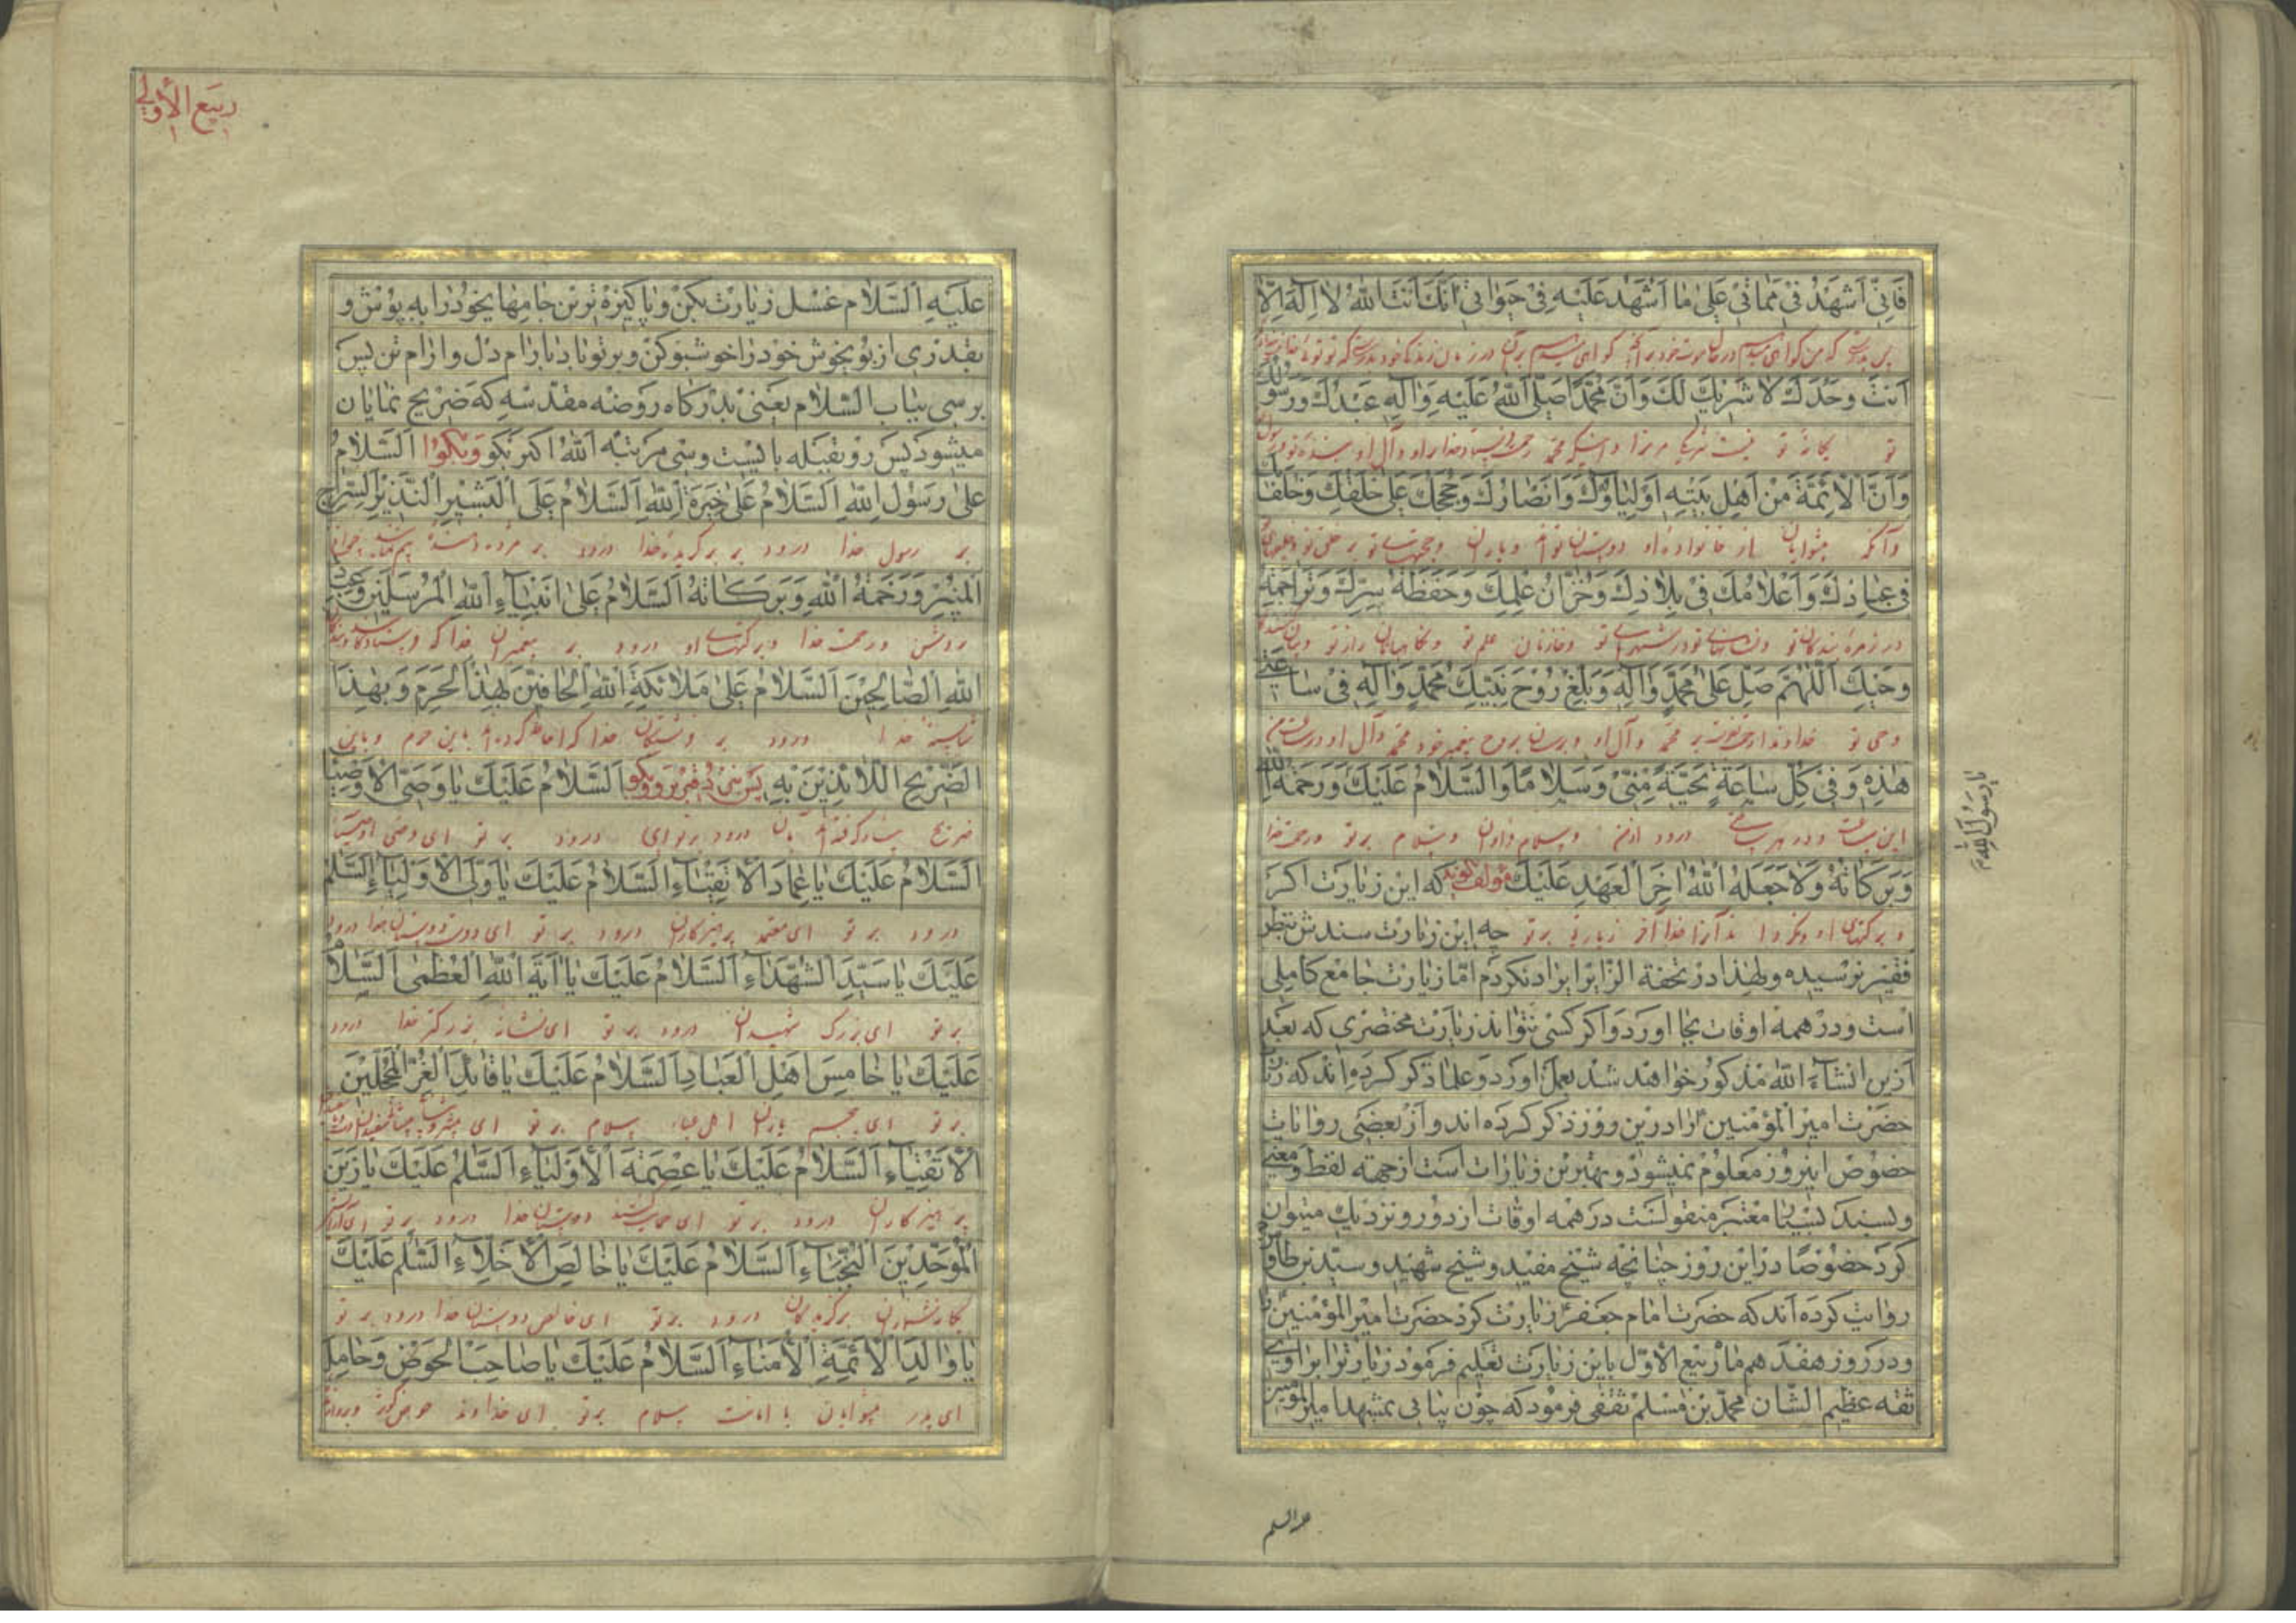 فَاِنّي اَشْهَدُ في مَماتي عَلیٰ ما اَشْهَدُ عَلَيْهِ في حَيٰوتي اَنَّكَ اَنْتَ اللهُ لا اِلٰهَ اِلّا
اَنْتَ وَحْدَكَ لا شَريكَ لَكَ وَاَنَّ مُحَمَّدًا صَلَّی اللهُ عَلَيْهِ وَآلِهِ عَبْدُكَ وَرَسُولُكَ
تو یگانهٔ تو نیست شریک مر ترا
وَاَنَّ الْاَئِمَّةَ مِنْ اَهْلِ بَيْتِهِ اَوْلِياؤُكَ وَاَنْصارُكَ وَحُجَجُكَ عَلیٰ خَلْقِكَ وَخُلَفاؤُكَ
وآنکه پیشوایان از خانواده او دوستان تواند ویاران وحجتهای تو بر خلق تو
في عِبادِكَ وَاَعْلامُكَ في بِلادِكَ وَخُزّانُ عِلْمِكَ وَحَفَظَةُ سِرِّكَ وَتَراجِمَةُ
در زمره بندگان تو ونشانهای تو در شهرهای تو وخازنان علم تو ونگاهبانان راز تو
وَحْيِكَ اَللّٰهُمَّ صَلِّ عَلیٰ مُحَمَّدٍ وَآلِهِ وَبَلِّغْ رُوْحَ نَبِيِّكَ مُحَمَّدٍ وَآلِهِ في ساعَتي
وحی تو خداوندا رحمت فرست بر محمد وآل او وبرسان بروح پیغمبر خود محمد وآل او در ساعت من
هٰذِهِ وَفي كُلِّ ساعَةٍ تَحِيَّةً مِنّي وَسَلامًا وَالسَّلامُ عَلَيْكَ وَرَحْمَةُ اللهِ
این ساعت ودر هر ساعتی درود از من وسلام فراوان وسلام بر تو ورحمت خدا
وَبَرَكاتُهُ وَلا جَعَلَهُ اللهُ اٰخِرَ الْعَهْدِ عَلَيْكَ مؤلف گوید که این زیارت اگر
وبرکتهای او ونگرداند آنرا خدا آخر زیارتی بر تو چه این زیارت سندش بنظر
فقیر نرسیده ولهذا در تحفة الزّائر ایراد نکردم امّا زیارت جامع کاملی
است ودر همه اوقات بجا آورد واگر کسی نتواند زیارت مختصری که بعد
ازین انشآء الله مذکور خواهد شد بعمل آورد وعلما ذکر کرده‌اند که زیارت
حضرت امیر المؤمنین را در این روز ذکر کرده اند واز بعضی روایات
خصوص اینروز معلوم نمیشود وبهترین زیارات است از جهة لفظ ومعنی
وبسند بسیار معتبر منقولست در همه اوقات از دور ونزدیك میتوان
کرد خصوصًا در این روز چنانچه شیخ مفید وشیخ شهید وسیّد بن طاوس
روایت کرده اند که حضرت امام جعفر زیارت کرد حضرت امیر المؤمنین را
ودر روز هفدهم ماه ربیع الاوّل باین زیارت تعلیم فرمود زیارترا برا وی
ثقه عظیم الشّان محمّد بن مسلم ثقفی فرمود که چون بیابی بمشهد امیر المؤمنین
علیه السلم
یا رسول الله
ربیع الأولی
علیه السّلام غسل زیارت بکن وپاکیزه ترین جامهای خود را به پوش و
بقدری از بوی خوش خود را خوشبو کن وبرو با دل با رام دل وآرام تن پس
برسی بباب السّلام یعنی بدرگاه روضه مقدّسه که ضریح نمایان
میشود پس رو بقبله بایست وسی مرتبه الله اکبر بگو وبگو اَلسَّلامُ
عَلیٰ رَسُولِ اللهِ اَلسَّلامُ عَلیٰ خِيَرَةِ اللهِ اَلسَّلامُ عَلَی الْبَشيرِ النَّذيرِ السِّراجِ
بر رسول خدا درود بر برگزیدهٔ خدا درود بر مژده دهنده
الْمُنيرِ وَرَحْمَةُ اللهِ وَبَرَكاتُهُ اَلسَّلامُ عَلیٰ اَنْبِياءِ اللهِ الْمُرْسَلينَ وَعِبادِ
روشن ورحمت خدا وبرکتهای او درود بر پیغمبران خدا که
اللهِ الصّالِحينَ اَلسَّلامُ عَلیٰ مَلائِكَةِ اللهِ الْحافّينَ بِهٰذَا الْحَرَمِ وَبِهٰذَا
شایستهٔ خدا درود بر فرشتگان خدا که احاطه کرده‌اند باین حرم وباین
الضَّريحِ اللّائِذينَ بِهِ پس نزدیك قبر برو وبگو اَلسَّلامُ عَلَيْكَ يا وَصِيَّ الْاَوْصِياءِ
ضریح پناه گرفته‌اند بآن درود بر تو ای درود بر تو ای وصی اوصیا
اَلسَّلامُ عَلَيْكَ يا عِمادَ الْاَتْقِياءِ اَلسَّلامُ عَلَيْكَ يا وَلِيَّ الْاَوْلِياءِ اَلسَّلٰمُ
درود بر تو ای معتمد پرهیزکاران درود بر تو ای دوست دوستان خدا درود
عَلَيْكَ يا سَيِّدَ الشُّهَداءِ اَلسَّلامُ عَلَيْكَ يا اٰيَةَ اللهِ الْعُظْمیٰ اَلسَّلامُ
بر تو ای بزرگ شهیدان درود بر تو ای نشانهٔ بزرگتر خدا درود
عَلَيْكَ يا خامِسَ اَهْلِ الْعَباءِ اَلسَّلامُ عَلَيْكَ يا قائِدَ الْغُرِّ الْمُحَجَّلينَ
بر تو ای پنجم یاران اهل عبا سلام بر تو ای
الْاَتْقِياءِ اَلسَّلامُ عَلَيْكَ يا عِصْمَةَ الْاَوْلِياءِ اَلسَّلٰمُ عَلَيْكَ يا زَيْنَ
پرهیزکاران درود بر تو ای دوستان خدا درود بر تو
الْمُوَحِّدينَ النُّجَباءِ اَلسَّلامُ عَلَيْكَ يا خالِصَ الْاَخِلّاءِ اَلسَّلٰمُ عَلَيْكَ
برگزیدگان درود بر تو ای خالص دوستان خدا درود بر تو
يا والِدَ الْاَئِمَّةِ الْاُمَناءِ اَلسَّلامُ عَلَيْكَ يا صاحِبَ الْحَوْضِ وَحامِلَ
ای پدر پیشوایان با امانت سلام بر تو ای خداوند حوض کوثر